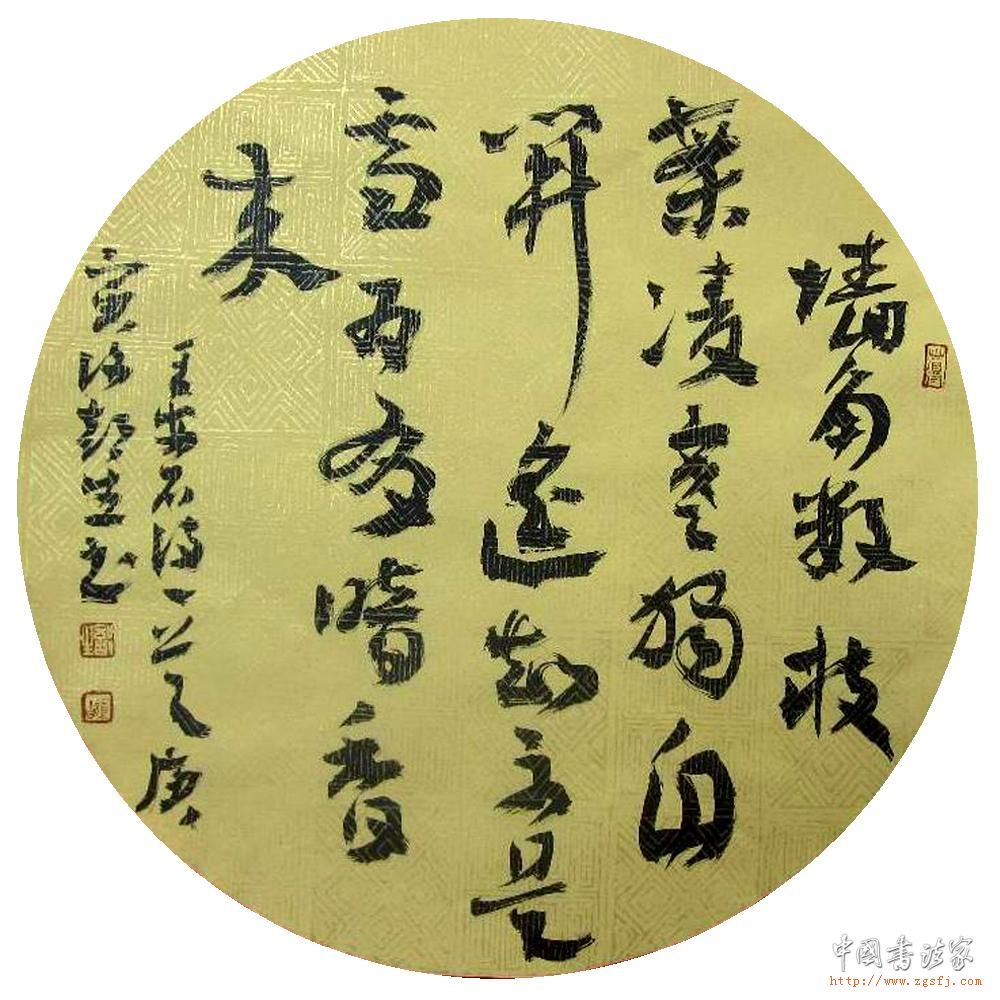 墙角数枝
梅凌寒獨自
開遥知不是
雪为有暗香
来
王安石诗一庚
寅彭生书
中国书法家
http://www.zgsfj.com